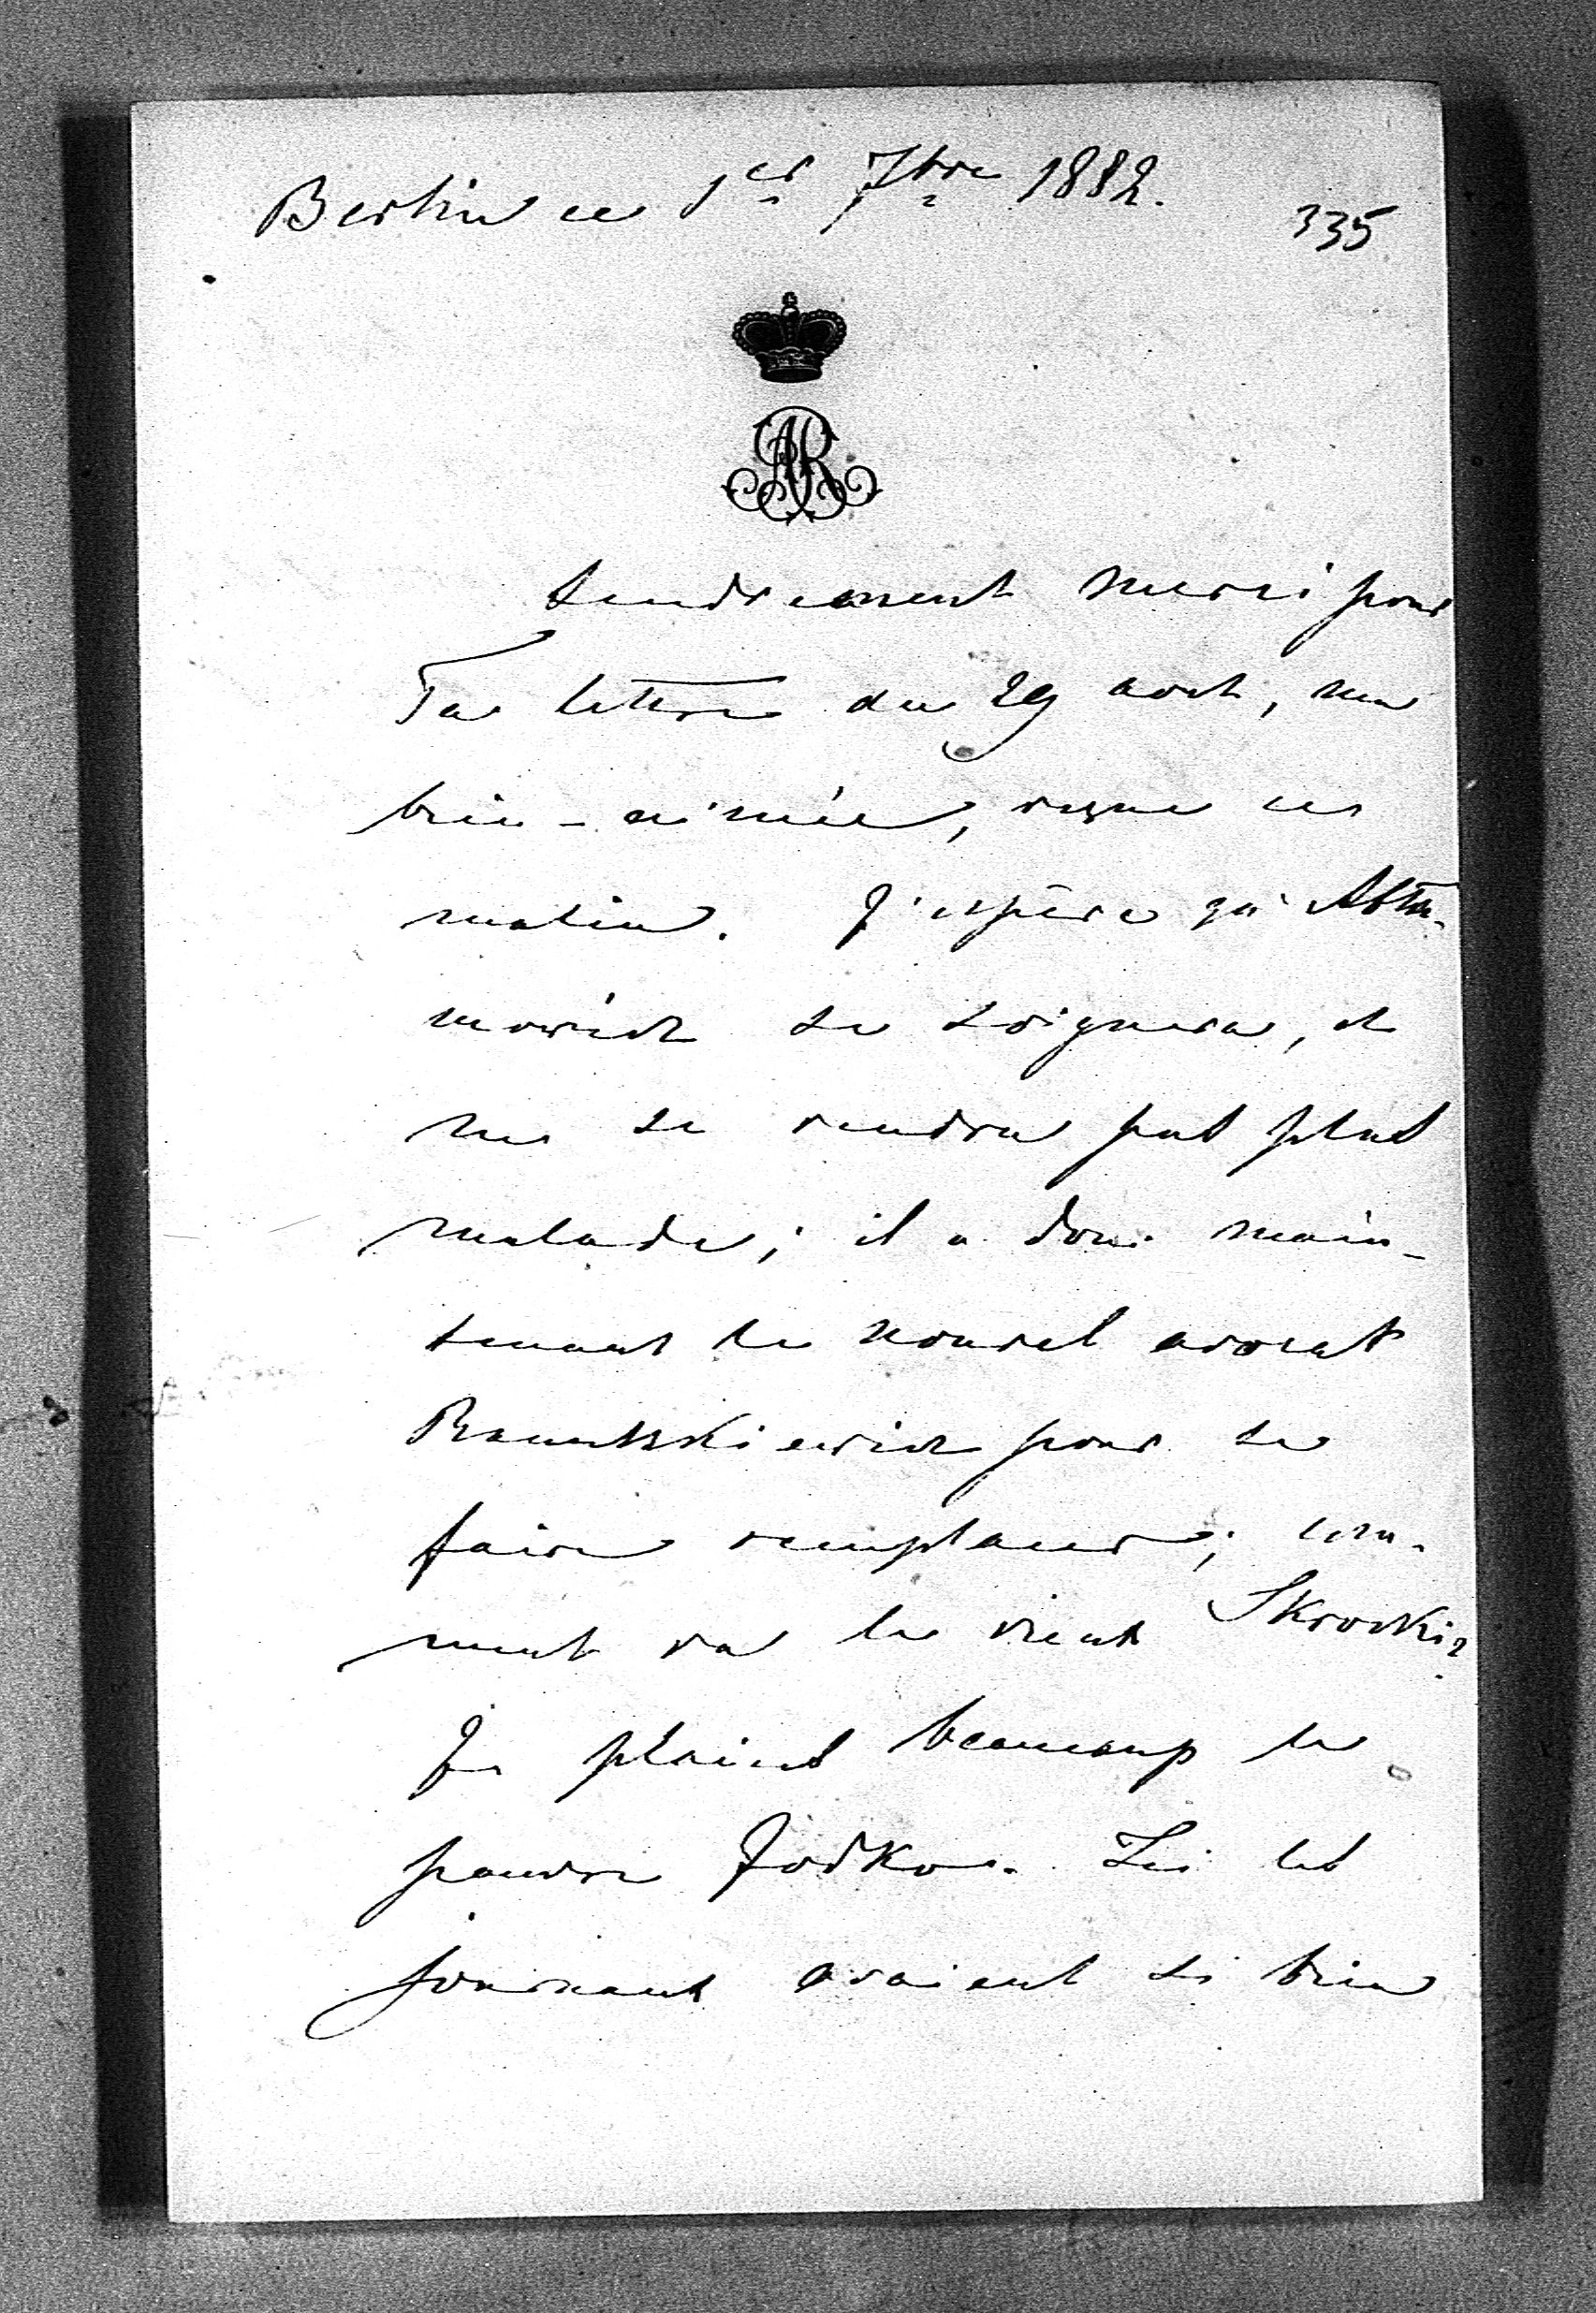 Berlin ce 1er 7bre 1882.
335
AR
tendrement merci pour
Ta lettre du 29 août, ma
bien-aimée, reçue ce
matin. J'espère qu'Abra-
mowicz se soignera, et
ne se rendra pas plus
malade; il a donc main-
tenant le nouvel avocat
pour se
faire remplacer; com-
ment va le vieux
Je plains beaucoup le
pauvre Jodko. Ici les
journaux avaient si bien